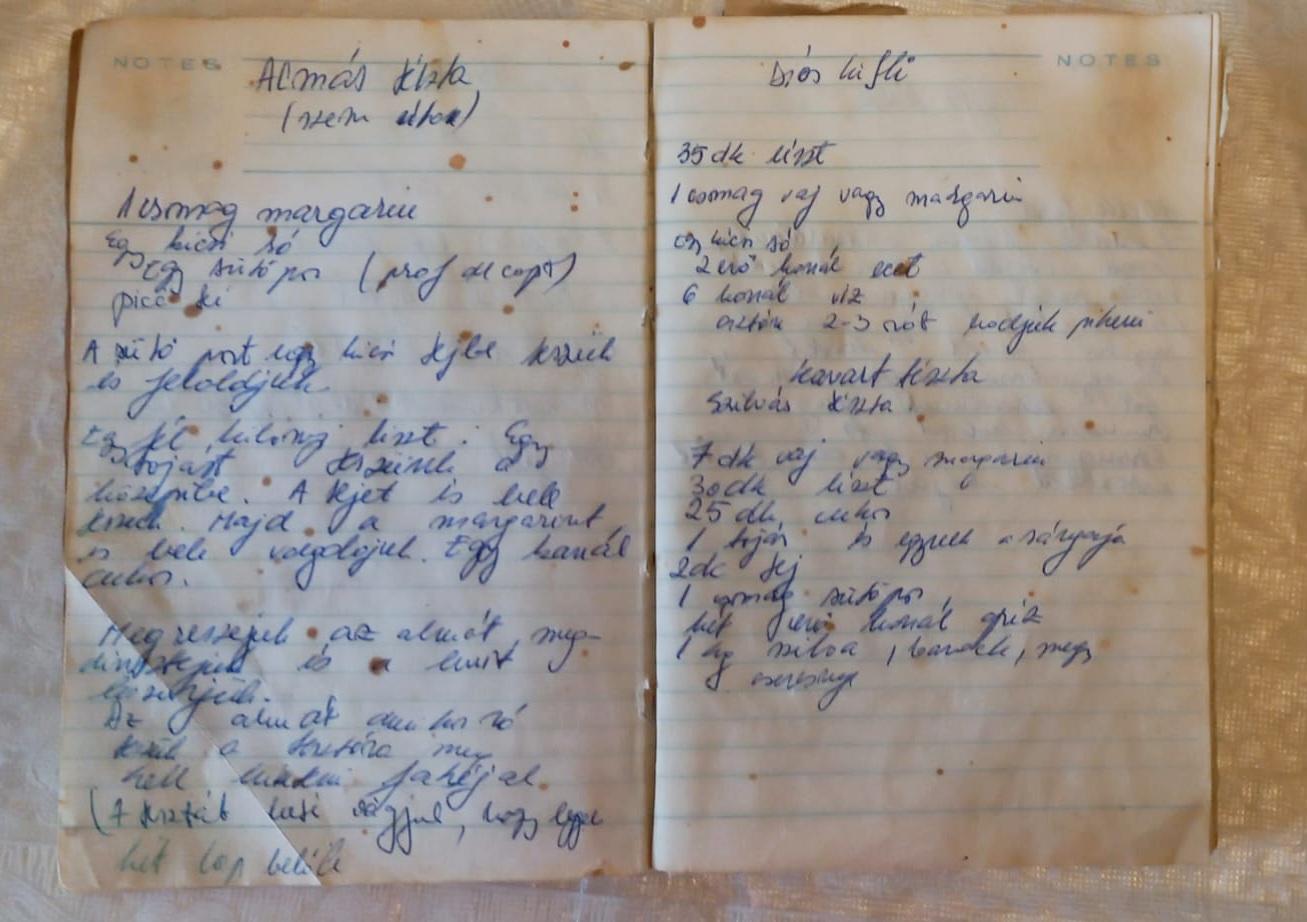 NOTES
Almás tészta
1 csomag margarin
Egy kicsi só
Egy sütőpor (praf de copt)
pico
A sütő port egy kicsi tejbe teszük
és feloldjuk.
Egy fél kilónyi liszt. Egy
tojást teszünk a
közepibe. A tejet is bele
teszük. Majd a margarint
is bele vagdaljuk. Egy kanál
cukor.
Megreszeljük az almát, meg-
dinszteljük és a levit
Az almát amikor rá
teszük a tésztára meg
kell hinteni fahéjal
(A tésztát ketté vágjuk, hogy legyen
két lap belőle
NOTES
Diós kifli
35 dk liszt
1 csomag vaj vagy margarin
Egy kicsi só
2 evő kanál ecet
6 kanál víz
aztán 2-3 órát hadjuk piheni
Kavart tészta
Szilvás tészta
7 dk vaj vagy margarin
30 dk liszt
25 dk cukor
1 tojás és egynek a sárgája
2dc tej
1 csomag sütőpor
két evő kanál gríz
1 kg szilva, barack, megy
cseresznye